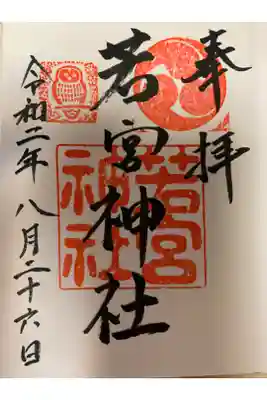 奉拝
若宮神社
若宮
神社
令和二年八月二十六日